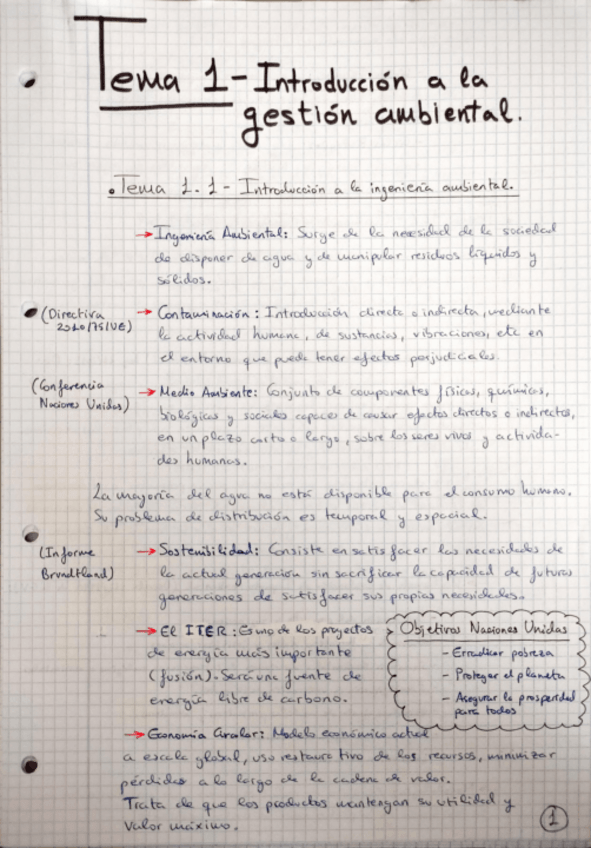 Tema 1 - Introducción a la
gestión ambiental.
. Tema 1.1 - Introducción a la ingeniería ambiental.
→ Ingeniería Ambiental: Surge de la necesidad de la sociedad
de disponer de agua y de manipular residuos líquidos y
sólidos.
(Directiva
2010/75/UE)
→ Contaminación: Introducción directa o indirecta, mediante
la actividad humana, de sustancias, vibraciones, etc en
el entorno que puede tener efectos perjudiciales.
(Conferencia
Naciones Unidas)
→ Medio Ambiente: Conjunto de componentes físicas, químicas,
biológicas y sociales capaces de causar efectos directos o indirectos,
en un plazo corto o largo, sobre los seres vivos y activida-
des humanas.
La mayoría del agua no está disponible para el consumo humano.
Su problema de distribución es temporal y espacial.
(Informe
Brundtland)
→ Sostenibilidad: Consiste en satisfacer las necesidades de
la actual generación sin sacrificar la capacidad de futuras
generaciones de satisfacer sus propias necesidades.
→ El ITER: Es uno de los proyectos
de energía más importante
(fusión). Será una fuente de
energía libre de carbono.
Objetivos Naciones Unidas
- Erradicar pobreza
- Proteger el planeta
- Asegurar la prosperidad
para todos
→ Economía Circular: Modelo económico actual
a escala global, uso restaurativo de los recursos, minimizar
pérdidas a lo largo de la cadena de valor.
Trata de que los productos mantengan su utilidad y
valor máximo.
1